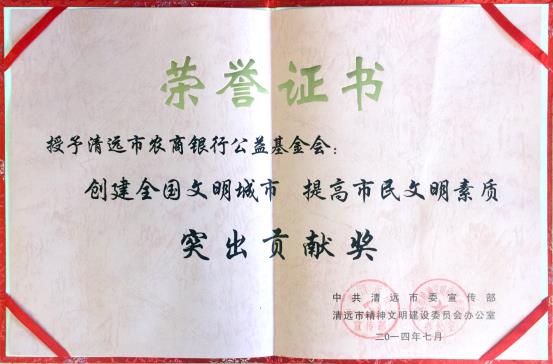 荣誉证书
授予清远市农商银行公益基金会：
创建全国文明城市 提高市民文明素质
突出贡献奖
中共清远市委宣传部
清远市精神文明建设委员会办公室
二〇一四年七月